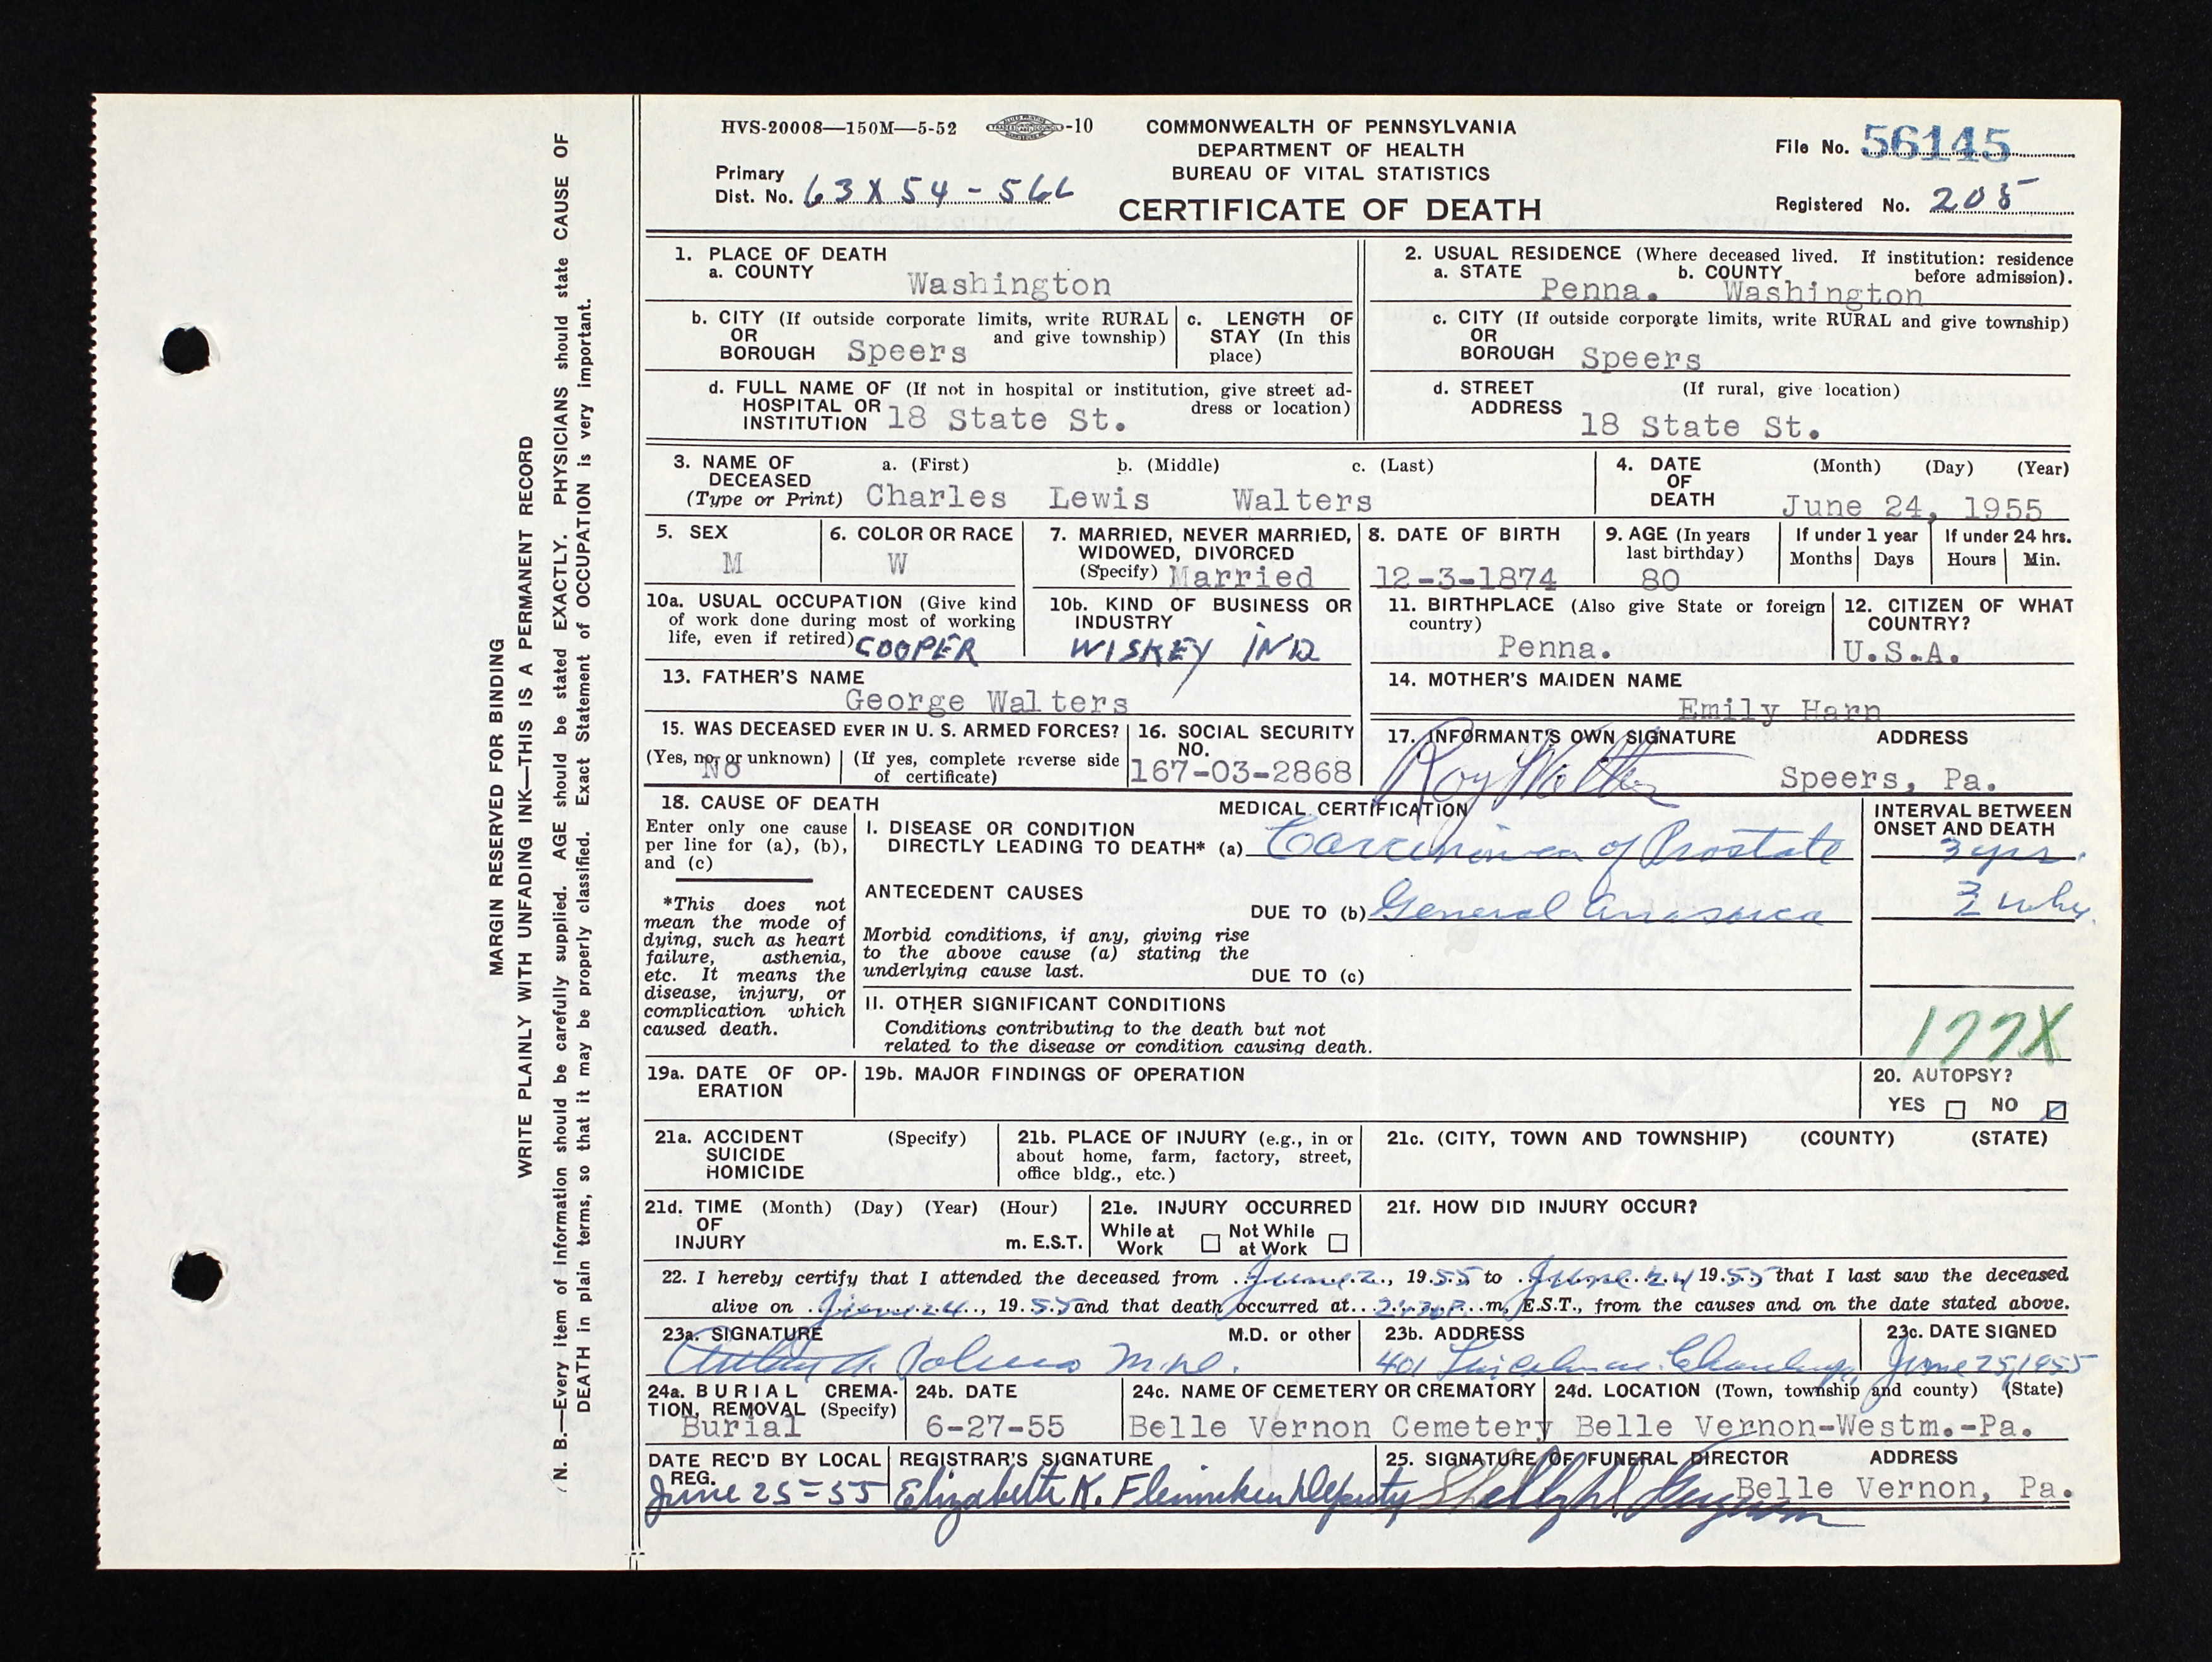 MARGIN RESERVED FOR BINDING
WRITE PLAINLY WITH UNFADING INK—THIS IS A PERMANENT RECORD
N. B.—Every item of information should be carefully supplied. AGE should be stated EXACTLY. PHYSICIANS should state CAUSE OF
DEATH in plain terms, so that it may be properly classified. Exact Statement of OCCUPATION is very important.
HVS-20008—150M—5-52 -10
COMMONWEALTH OF PENNSYLVANIA
DEPARTMENT OF HEALTH
BUREAU OF VITAL STATISTICS
CERTIFICATE OF DEATH
File No. 56145
Primary
Dist. No. 63X54-
Registered No. 205
1. PLACE OF DEATH
a. COUNTY
Washington
2. USUAL RESIDENCE (Where deceased lived. If institution: residence
a. STATE b. COUNTY before admission).
Penna. Washington
b. CITY (If outside corporate limits, write RURAL
OR and give township)
BOROUGH Speers
c. LENGTH OF
STAY (In this
place)
c. CITY (If outside corporate limits, write RURAL and give township)
OR
BOROUGH Speers
d. FULL NAME OF (If not in hospital or institution, give street ad-
HOSPITAL OR dress or location)
INSTITUTION 18 State St.
d. STREET (If rural, give location)
ADDRESS
18 State St.
3. NAME OF a. (First) b. (Middle) c. (Last)
DECEASED
(Type or Print) Charles Lewis Walters
4. DATE (Month) (Day) (Year)
OF
DEATH June 24, 1955
5. SEX
M
6. COLOR OR RACE
W
7. MARRIED, NEVER MARRIED,
WIDOWED, DIVORCED
(Specify) Married
8. DATE OF BIRTH
12-3-1874
9. AGE (In years
last birthday)
80
If under 1 year
Months Days
If under 24 hrs.
Hours Min.
10a. USUAL OCCUPATION (Give kind
of work done during most of working
life, even if retired) COOPER
10b. KIND OF BUSINESS OR
INDUSTRY
WISKEY IND
11. BIRTHPLACE (Also give State or foreign
country)
Penna.
12. CITIZEN OF WHAT
COUNTRY?
U.S.A.
13. FATHER'S NAME
George Walters
14. MOTHER'S MAIDEN NAME
Emily Harn
15. WAS DECEASED EVER IN U. S. ARMED FORCES?
(Yes, no, or unknown) (If yes, complete reverse side
No of certificate)
16. SOCIAL SECURITY
NO.
167-03-2868
17. INFORMANT'S OWN SIGNATURE ADDRESS
Roy Walters Speers, Pa.
18. CAUSE OF DEATH
Enter only one cause
per line for (a), (b),
and (c)
*This does not
mean the mode of
dying, such as heart
failure, asthenia,
etc. It means the
disease, injury, or
complication which
caused death.
MEDICAL CERTIFICATION
I. DISEASE OR CONDITION
DIRECTLY LEADING TO DEATH* (a) Carcinoma of Prostate
ANTECEDENT CAUSES
DUE TO (b) General Anasarca
Morbid conditions, if any, giving rise
to the above cause (a) stating the
underlying cause last. DUE TO (c)
II. OTHER SIGNIFICANT CONDITIONS
Conditions contributing to the death but not
related to the disease or condition causing death.
INTERVAL BETWEEN
ONSET AND DEATH
3 yrs.
177X
19a. DATE OF OP-
ERATION
19b. MAJOR FINDINGS OF OPERATION
20. AUTOPSY?
YES NO
21a. ACCIDENT (Specify)
SUICIDE
HOMICIDE
21b. PLACE OF INJURY (e.g., in or
about home, farm, factory, street,
office bldg., etc.)
21c. (CITY, TOWN AND TOWNSHIP) (COUNTY) (STATE)
21d. TIME (Month) (Day) (Year) (Hour)
OF
INJURY m. E.S.T.
21e. INJURY OCCURRED
While at Not While
Work at Work
21f. HOW DID INJURY OCCUR?
22. I hereby certify that I attended the deceased from June 2, 1955 to June 24 1955 that I last saw the deceased
alive on June 24, 1955 and that death occurred at m, E.S.T., from the causes and on the date stated above.
23a. SIGNATURE M.D. or other
M.D.
23b. ADDRESS
401
23c. DATE SIGNED
June 25, 1955
24a. BURIAL CREMA-
TION, REMOVAL (Specify)
Burial
24b. DATE
6-27-55
24c. NAME OF CEMETERY OR CREMATORY
Belle Vernon Cemetery
24d. LOCATION (Town, township and county) (State)
Belle Vernon-Westm.-Pa.
DATE REC'D BY LOCAL
REG.
June 25-55
REGISTRAR'S SIGNATURE
Elizabeth K. Flenniken Deputy
25. SIGNATURE OF FUNERAL DIRECTOR ADDRESS
Belle Vernon, Pa.